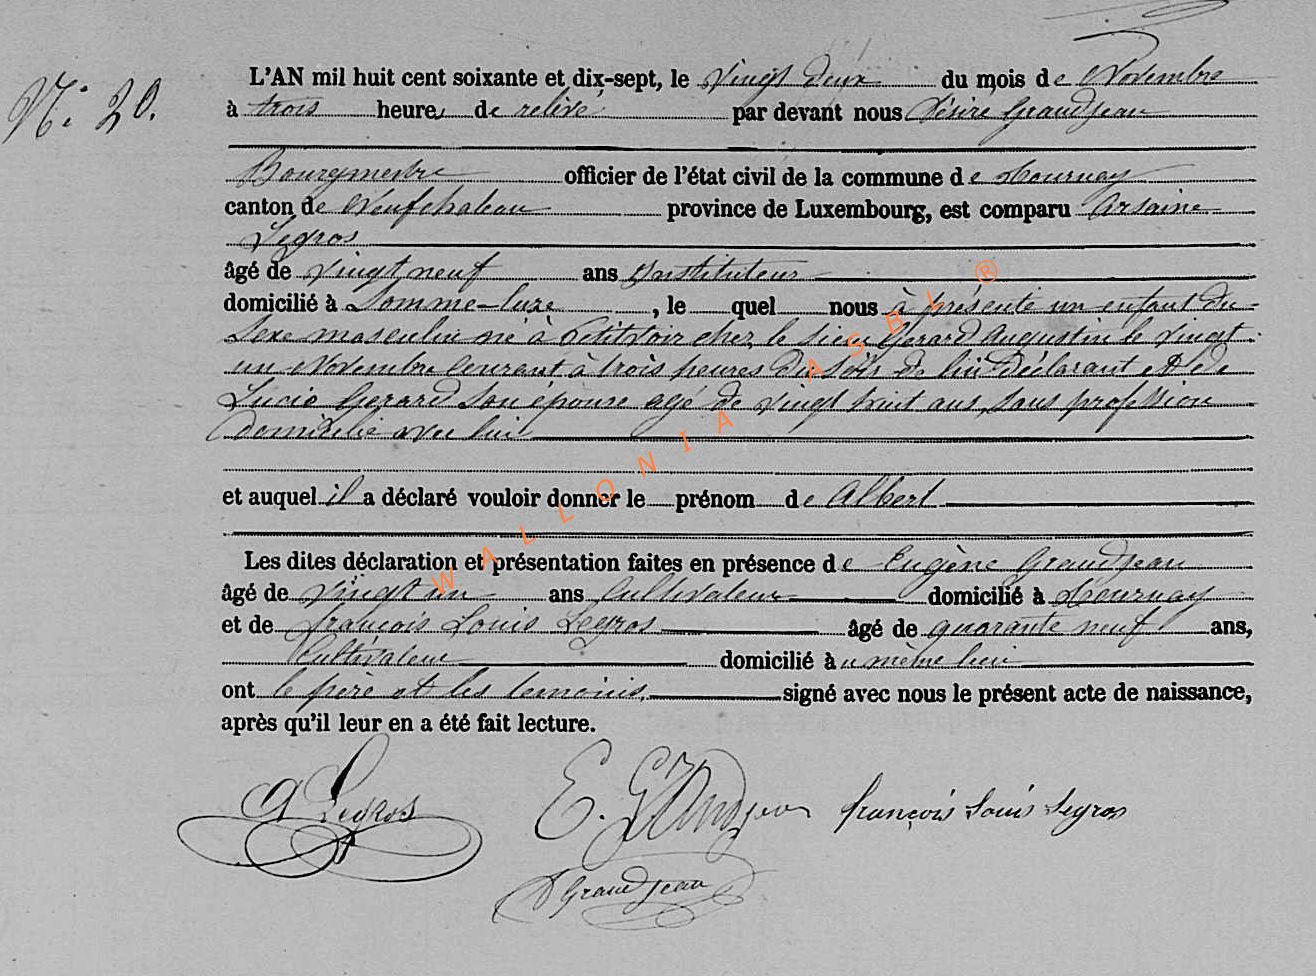 N: 20.
L'AN mil huit cent soixante et dix-sept, le vingt deux du mois de Novembre
à trois heures de relevé par devant nous Désiré Grandjean
Bourgmestre officier de l'état civil de la commune de Tournay
canton de Neufchateau province de Luxembourg, est comparu Arsaine
Legros
âgé de vingt neuf ans Instituteur
domicilié à Somme-luxe, le quel nous à présenté un enfant du
sexe masculin né à Petitvoir chez le sieur Gerard Augustin le vingt
un Novembre courant à trois heures du soir de lui déclarant et de
Lucie Gerard son épouse agé de vingt huit ans, sans profession
domicilié avec lui
et auquel il a déclaré vouloir donner le prénom de Albert
Les dites déclaration et présentation faites en présence de Eugène Grandjean
âgé de vingt un ans Cultivateur domicilié à Tournay
et de François Louis Legros âgé de quarante neuf ans,
Cultivateur domicilié au même lieu
ont le père et les temoins, signé avec nous le présent acte de naissance,
après qu'il leur en a été fait lecture.
A Legros E. Grandjean françois Louis Legros
D Grandjean
WALLONIA ASBL ®